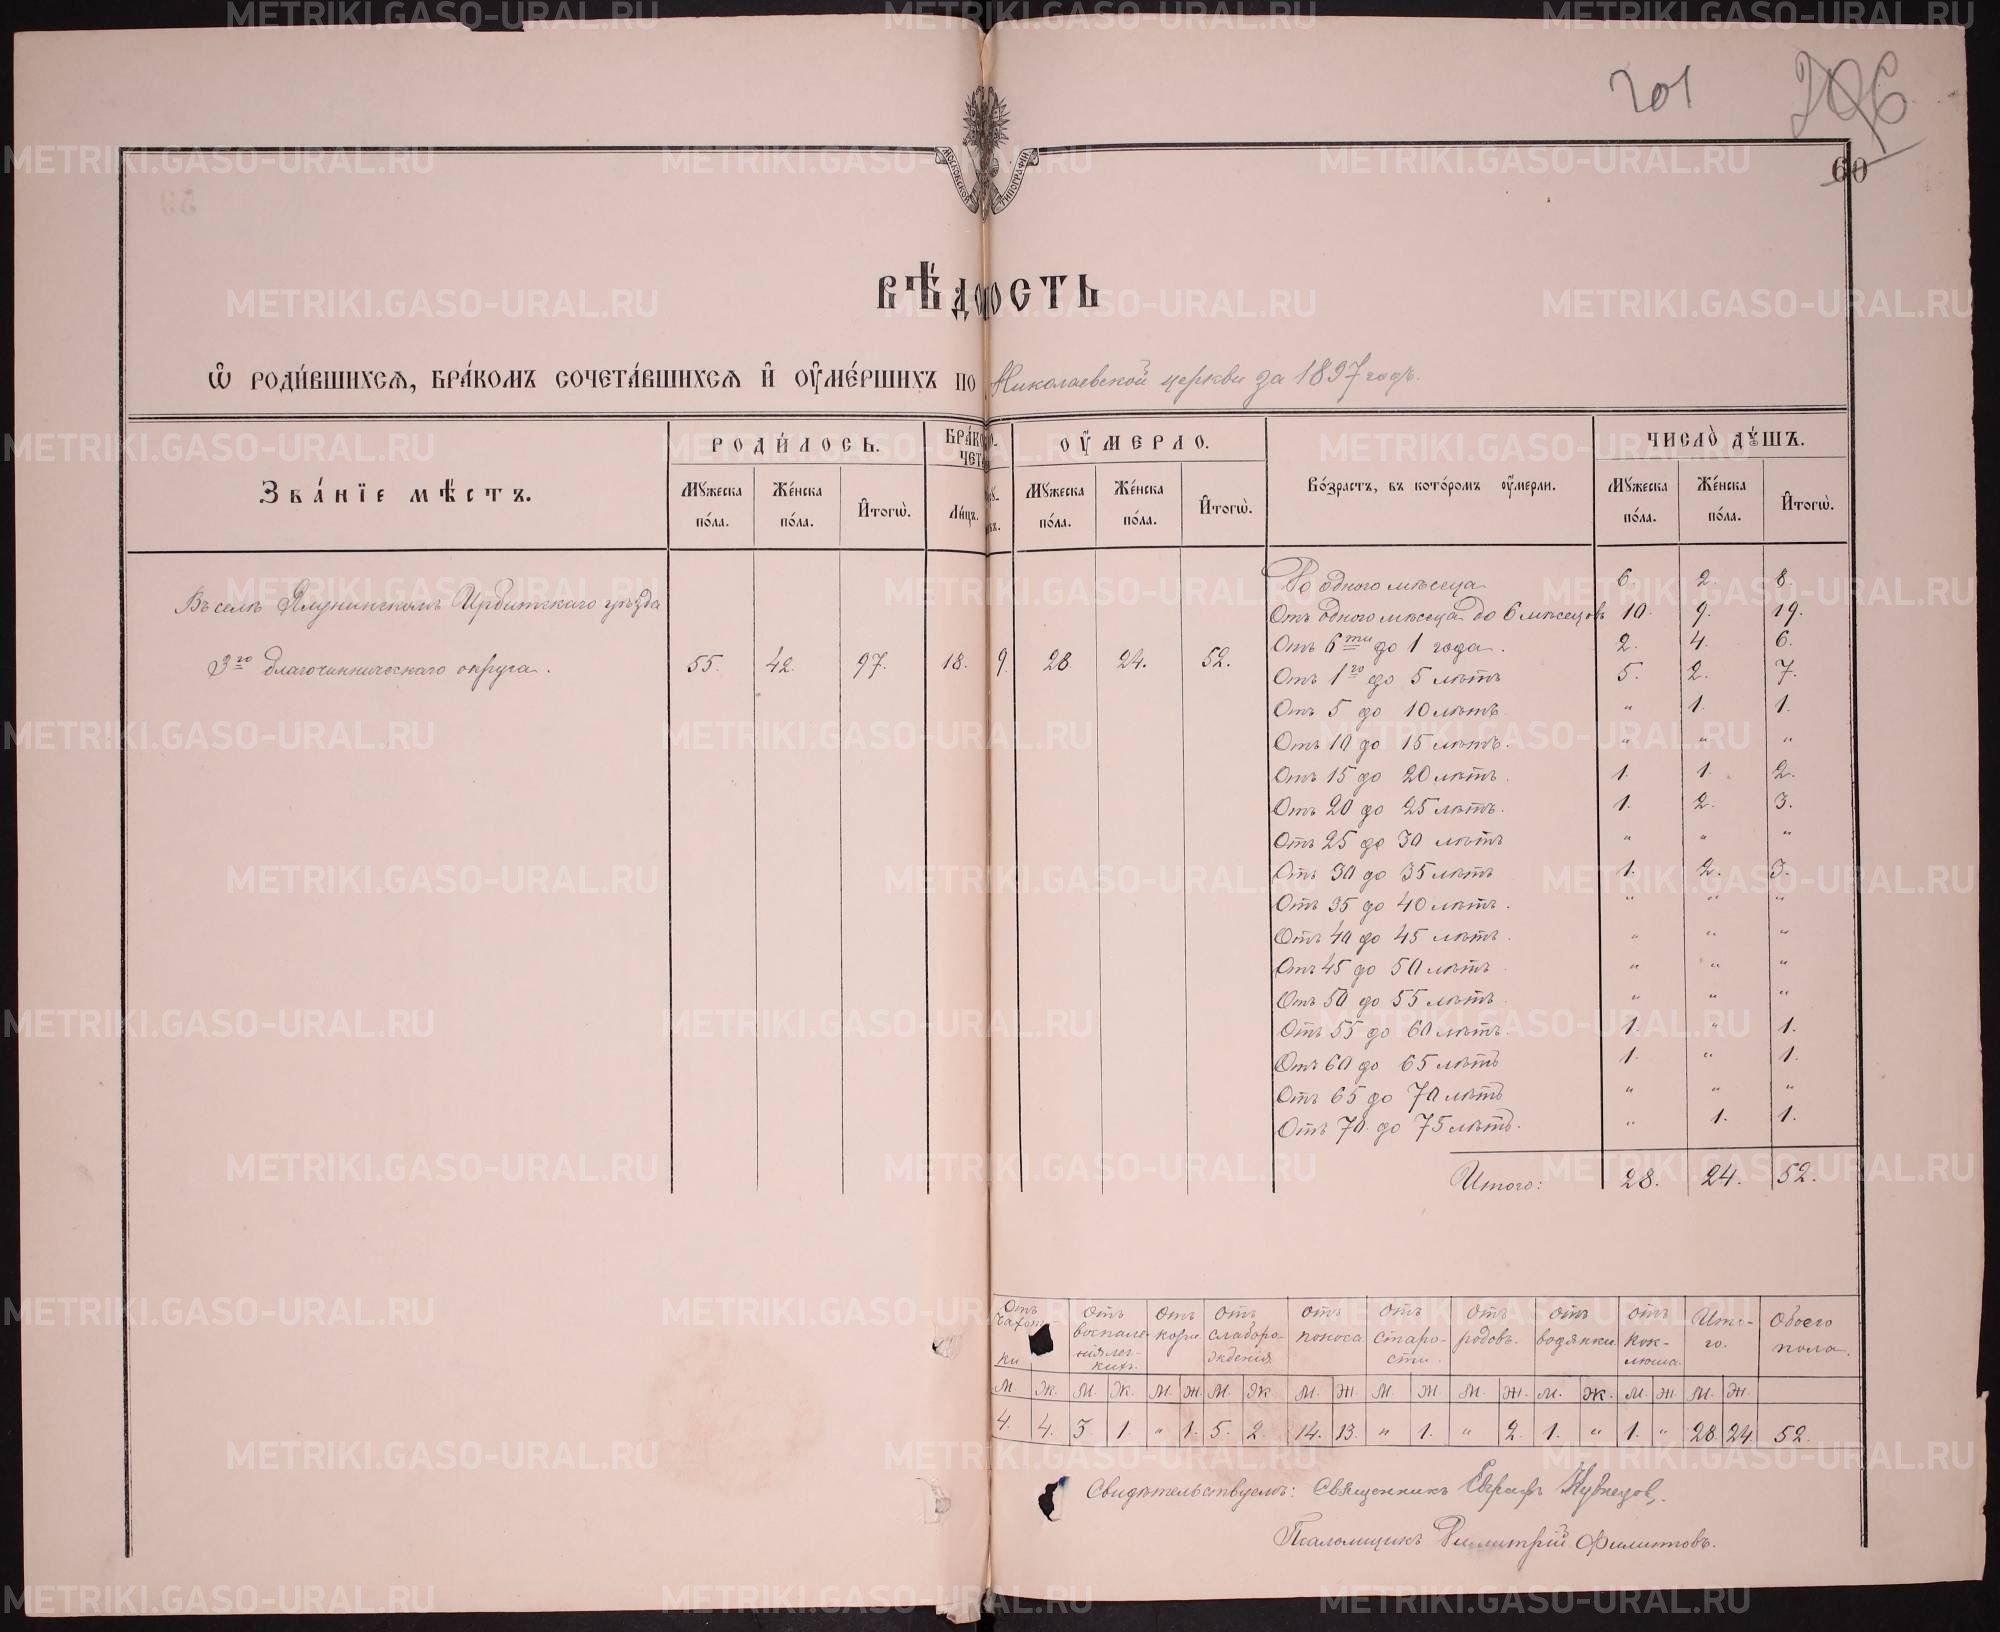 201
206
60
МОСКОВСКОЙ ТИПОГРАФІИ
ВѢДОМОСТЬ
Ѿ РОДИ́ВШИХСѦ, БРА́КОМЪ СОЧЕТА́ВШИХСѦ И҆ ОУ҆МЕ́РШИХЪ ПО Николаевской церкви за 1897 годъ.
Зва́нїе мѣ́стъ. РОДИ́ЛОСЬ. БРА́КО-СОЧЕТА ОУ҆МЕРЛО. Во́зрастъ, въ кото́ромъ оу҆мерли. ЧИСЛО̀ ДꙊШЪ.
Мꙋжеска по́ла. Же́нска по́ла. И҆тогѡ̀. Ли́цъ. Мꙋжеска по́ла. Же́нска по́ла. И҆тогѡ̀. Мꙋжеска по́ла. Же́нска по́ла. И҆тогѡ̀.
Въ селѣ Ялунинскомъ Ирбитскаго уѣзда
3го благочинническаго округа. 55. 42. 97. 18. 9. 28. 24. 52.
До одного мѣсяца 6. 2. 8.
Отъ одного мѣсяца до 6 мѣсяцовъ 10. 9. 19.
Отъ 6ти до 1 года. 2. 4. 6.
Отъ 1го до 5 лѣтъ 5. 2. 7.
Отъ 5 до 10 лѣтъ " 1. 1.
Отъ 10 до 15 лѣтъ. " " "
Отъ 15 до 20 лѣтъ. 1. 1. 2.
Отъ 20 до 25 лѣтъ. 1. 2. 3.
Отъ 25 до 30 лѣтъ " " "
Отъ 30 до 35 лѣтъ 1. 2. 3.
Отъ 35 до 40 лѣтъ. " " "
Отъ 40 до 45 лѣтъ. " " "
Отъ 45 до 50 лѣтъ " " "
Отъ 50 до 55 лѣтъ " " "
Отъ 55 до 60 лѣтъ. 1. " 1.
Отъ 60 до 65 лѣтъ 1. " 1.
Отъ 65 до 70 лѣтъ " " "
Отъ 70 до 75 лѣтъ. " 1. 1.
Итого: 28. 24. 52.
Отъ чахотки Отъ воспаленія легкихъ. Отъ кори Отъ слаборожденія Отъ поноса Отъ старости. Отъ родовъ. Отъ водянки. Отъ коклюша. Итого. Обоего пола.
М. Ж. М. Ж. М. Ж. М. Ж М. Ж. М. Ж М. Ж. М. Ж. М. Ж. М. Ж.
4. 4. 3 1. " 1. 5. 2. 14. 13. " 1. " 2. 1. " 1. " 28 24 52.
Свидѣтельствуемъ: Священникъ Евграфъ Кузнецовъ.
Псаломщикъ Димитрій Филипповъ.
METRIKI.GASO-URAL.RU